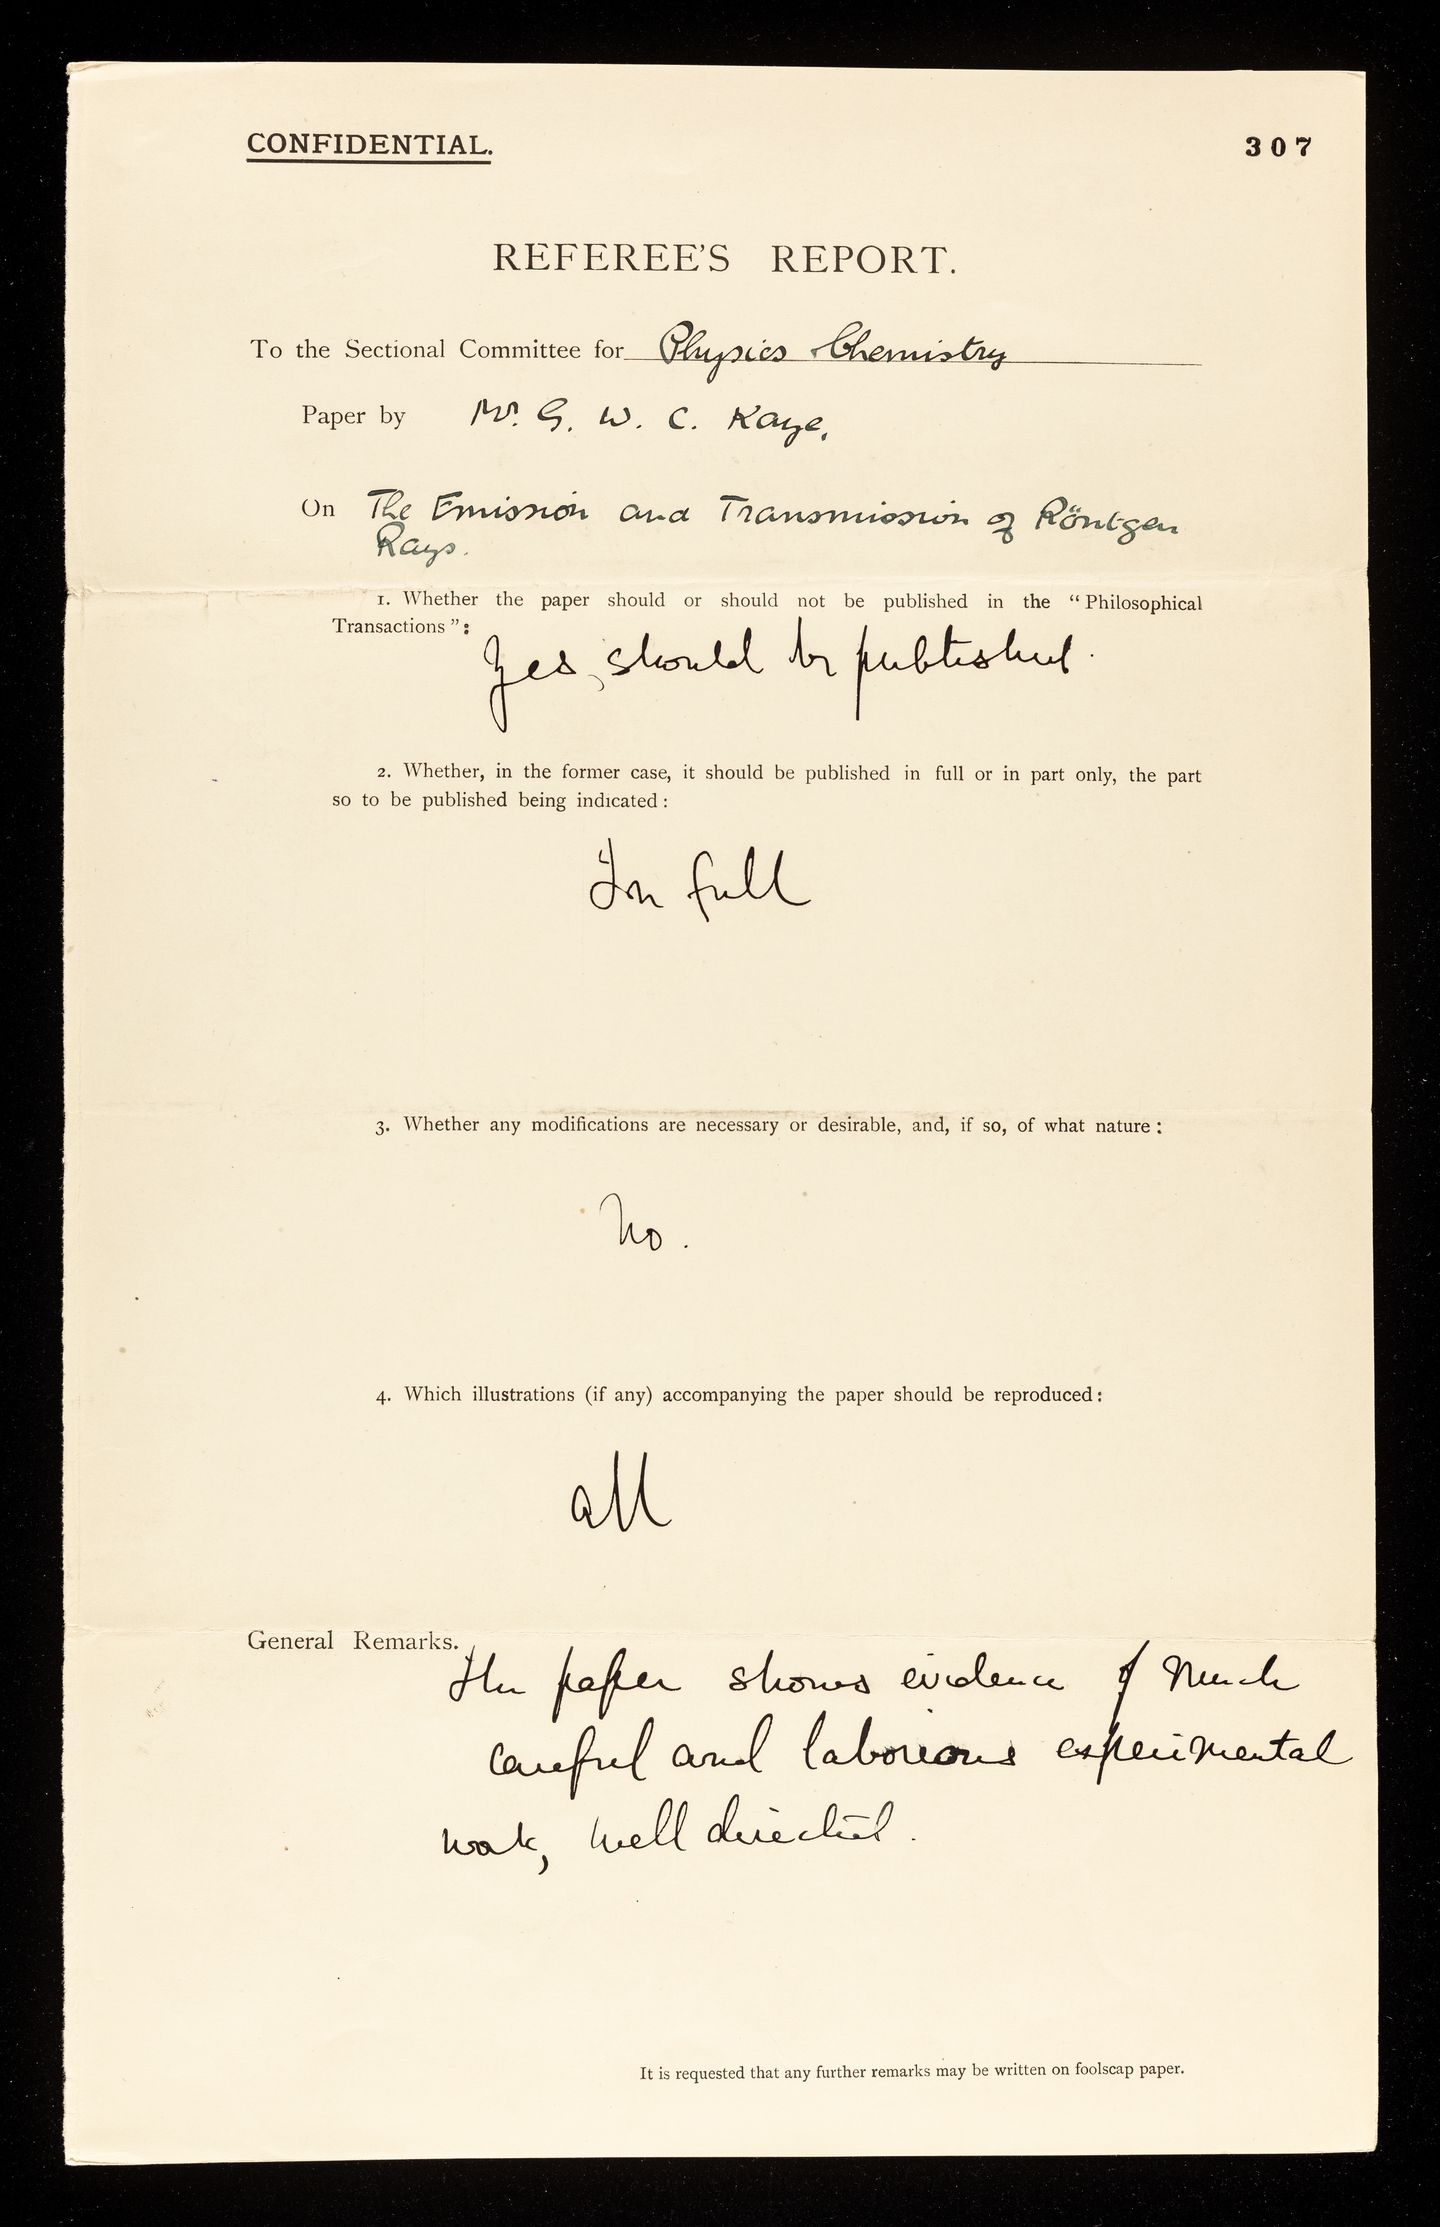 CONFIDENTIAL.
307
REFEREE'S REPORT.
To the Sectional Committee for Physics + Chemistry
Paper by Mr. G. W. C. Kaye,
On The Emission and Transmission of Röntgen
Rays.
1. Whether the paper should or should not be published in the “Philosophical
Transactions”:
Yes, should be published.
2. Whether, in the former case, it should be published in full or in part only, the part
so to be published being indicated:
In full
3. Whether any modifications are necessary or desirable, and, if so, of what nature:
No.
4. Which illustrations (if any) accompanying the paper should be reproduced:
all
General Remarks.
The paper shows evidence of much
careful and laborious experimental
work, well directed.
It is requested that any further remarks may be written on foolscap paper.